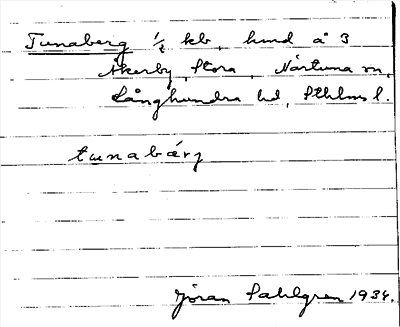 Tunaberg ½ kb, hmd å 3
Åkerby, Stora, Närtuna sn,
Långhundra hd, Sthlms l.
tunabärj
Jöran Sahlgren 1934.